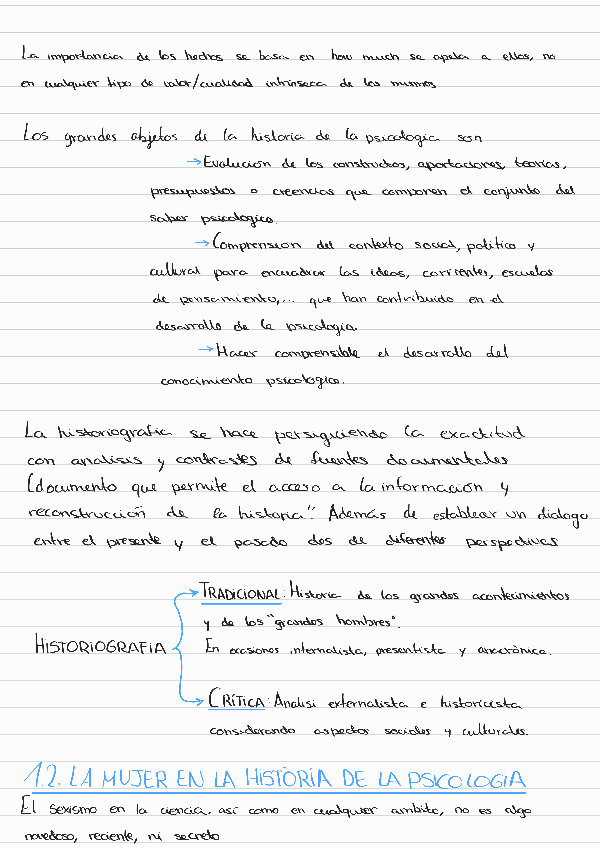 La importancia de los hechos se basa en how much se apela a ellos, no
en cualquier tipo de valor/cualidad intrínseca de los mismos
Los grandes objetos de la historia de la psicología son
→Evolución de los constructos, aportaciones, teorías,
presupuestos o creencias que componen el conjunto del
saber psicológico.
→Comprensión del contexto social, político y
cultural para encuadrar las ideas, corrientes, escuelas
de pensamiento,... que han contribuido en el
desarrollo de la psicología.
→Hacer comprensible el desarrollo del
conocimiento psicológico.
La historiografía se hace persiguiendo la exactitud
con análisis y contrastes de fuentes documentales
(documento que permite el acceso a la información y
reconstrucción de la historia". Además de establear un diálogo
entre el presente y el pasado dos de diferentes perspectivas
TRADICIONAL: Historia de los grandes acontecimientos
y de los "grandes hombres".
HISTORIOGRAFÍA En ocasiones internalista, presentista y anacrónica.
CRÍTICA: Analisi externalista e historicista
considerando aspectos sociales y culturales.
1.2. LA MUJER EN LA HISTORIA DE LA PSICOLOGIA
El sexismo en la ciencia, así como en cualquier ambito, no es algo
novedoso, reciente, ni secreto